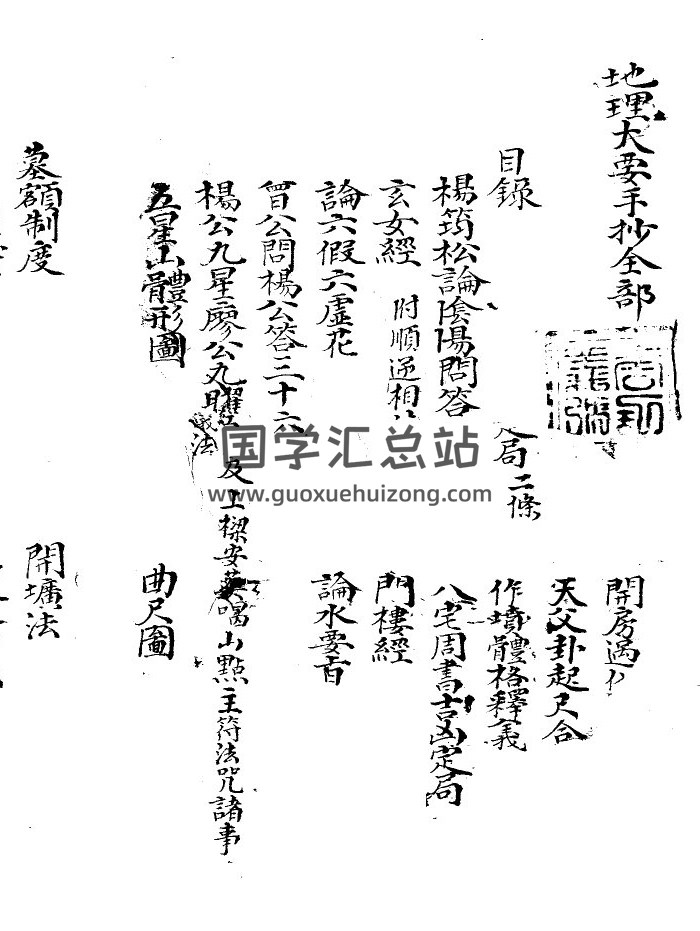 地理大要手抄全部
目錄
楊筠松論陰陽問答
玄女經 附順逆相
局二條
論六假六虛花
曾公問楊公答三十六
楊公九星廖公九曜
法
及上樑安葬喝山點主符法咒諸事
五星山體形圖
墓額制度
開房遇
天父卦起尺合
作墳體格釋義
八宅周書吉凶定局
門樓經
論水要旨
曲尺圖
開壙法
国学汇总站
www.guoxuehuizong.com